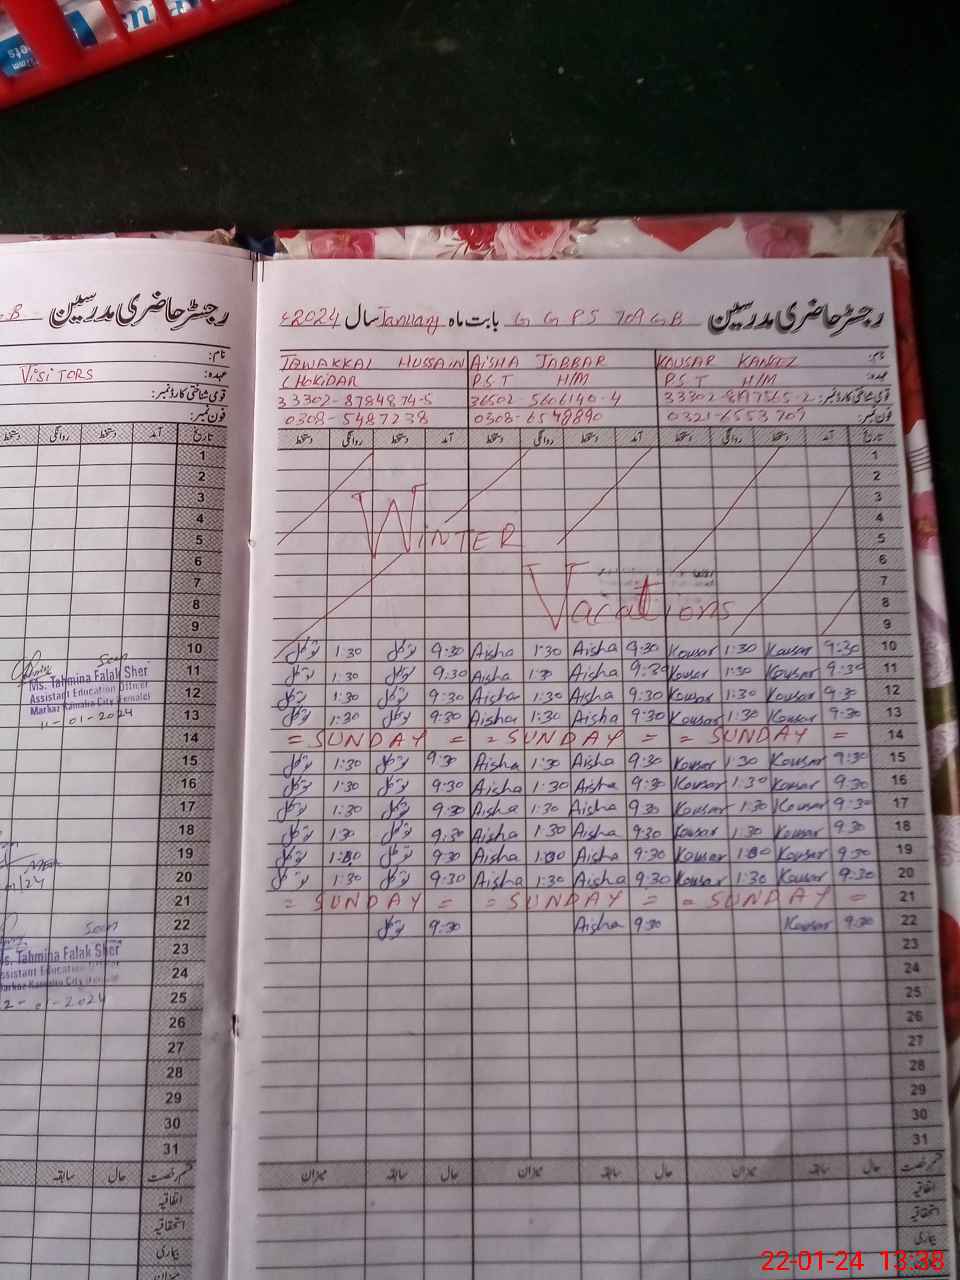 رجسٹر حاضری مدرسین
نام:
VISITORS عہدہ:
قومی شناختی کارڈ نمبر:
فون نمبر:
تاریخ آمد دستخط روانگی دستخط
1
2
3
4
5
6
7
8
9
10
Seen
11
Ms. Tahmina Falak Sher
Assistant Education Officer
12
Markaz Kamalia City (Female)
11-01-2024
13
14
15
16
17
18
19
20
21
22
Seen
Ms. Tahmina Falak Sher
23
Assistant Education Officer
24
Markaz Kamalia City (Female)
2-01-2024
25
26
27
28
29
30
31
قسم رخصت حال سابقہ
اتفاقیہ
استحقاقیہ
بیماری
میزان
رجسٹر حاضری مدرسین G G P S 709 GB بابت ماہ January سال 2024ء
نام: KOUSAR KANEEZ AISHA JABBAR TAWAKKAL HUSSAIN
عہدہ: P.S.T H/M P.S.T H/M CHOKIDAR
قومی شناختی کارڈ نمبر: 36502-5606140-4 33302-8784874-5
فون نمبر: 0321-6553709 0308-6548890 0308-5487238
تاریخ آمد دستخط روانگی دستخط آمد دستخط روانگی دستخط آمد دستخط روانگی دستخط
1
2
3
4
5 WINTER
6
7
8 Vacations
9
10 9:30 Kousar 1:30 Kousar 9:30 Aisha 1:30 Aisha 9:30 توکل 1:30 توکل
11 9:30 Kousar 1:30 Kousar 9:30 Aisha 1:30 Aisha 9:30 توکل 1:30 توکل
12 9:30 Kousar 1:30 Kousar 9:30 Aisha 1:30 Aisha 9:30 توکل 1:30 توکل
13 9:30 Kousar 1:30 Kousar 9:30 Aisha 1:30 Aisha 9:30 توکل 1:30 توکل
14 = SUNDAY = = SUNDAY = = SUNDAY =
15 9:30 Kousar 1:30 Kousar 9:30 Aisha 1:30 Aisha 9:30 توکل 1:30 توکل
16 9:30 Kousar 1:30 Kousar 9:30 Aisha 1:30 Aisha 9:30 توکل 1:30 توکل
17 9:30 Kousar 1:30 Kousar 9:30 Aisha 1:30 Aisha 9:30 توکل 1:30 توکل
18 9:30 Kousar 1:30 Kousar 9:30 Aisha 1:30 Aisha 9:30 توکل 1:30 توکل
19 9:30 Kousar Kousar 9:30 Aisha Aisha 9:30 توکل توکل
20 9:30 Kousar 1:30 Kousar 9:30 Aisha 1:30 Aisha 9:30 توکل 1:30 توکل
21 = SUNDAY = = SUNDAY = = SUNDAY =
22 9:30 Kousar 9:30 Aisha 9:30 توکل
23
24
25
26
27
28
29
30
31
قسم رخصت حال سابقہ میزان حال سابقہ میزان حال سابقہ میزان
اتفاقیہ
استحقاقیہ
بیماری
میزان
22-01-24 13:38